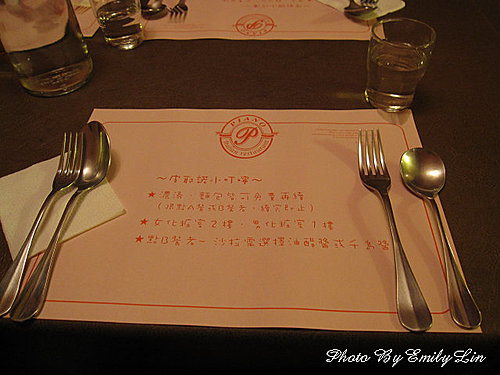 PIANO
P
～皮雅諾小叮嚀～
★濃湯、麵包皆可免費再續
(限點A餐或B餐者，續完即止)
★女化粧室2樓，男化粧室1樓
★點B餐者~沙拉需選擇油醋醬或千島醬
Photo By Emily Lin